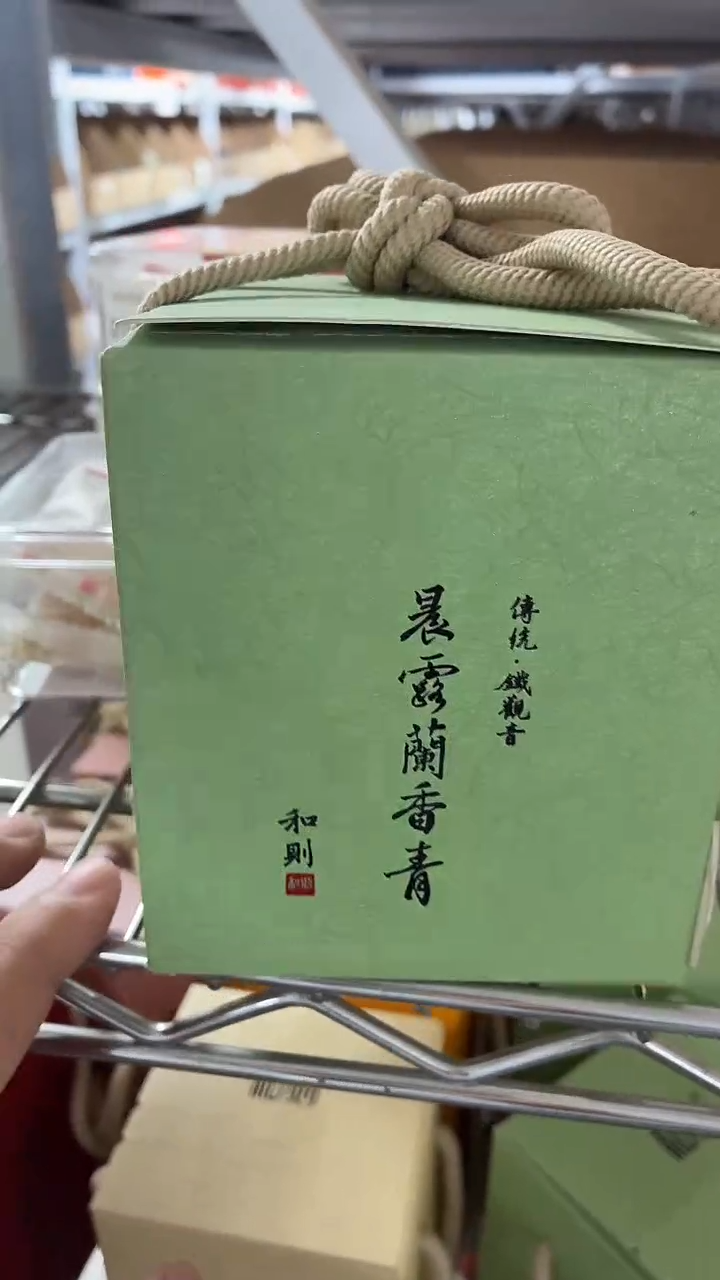 傳統·鐵觀音
晨露蘭香青
和則